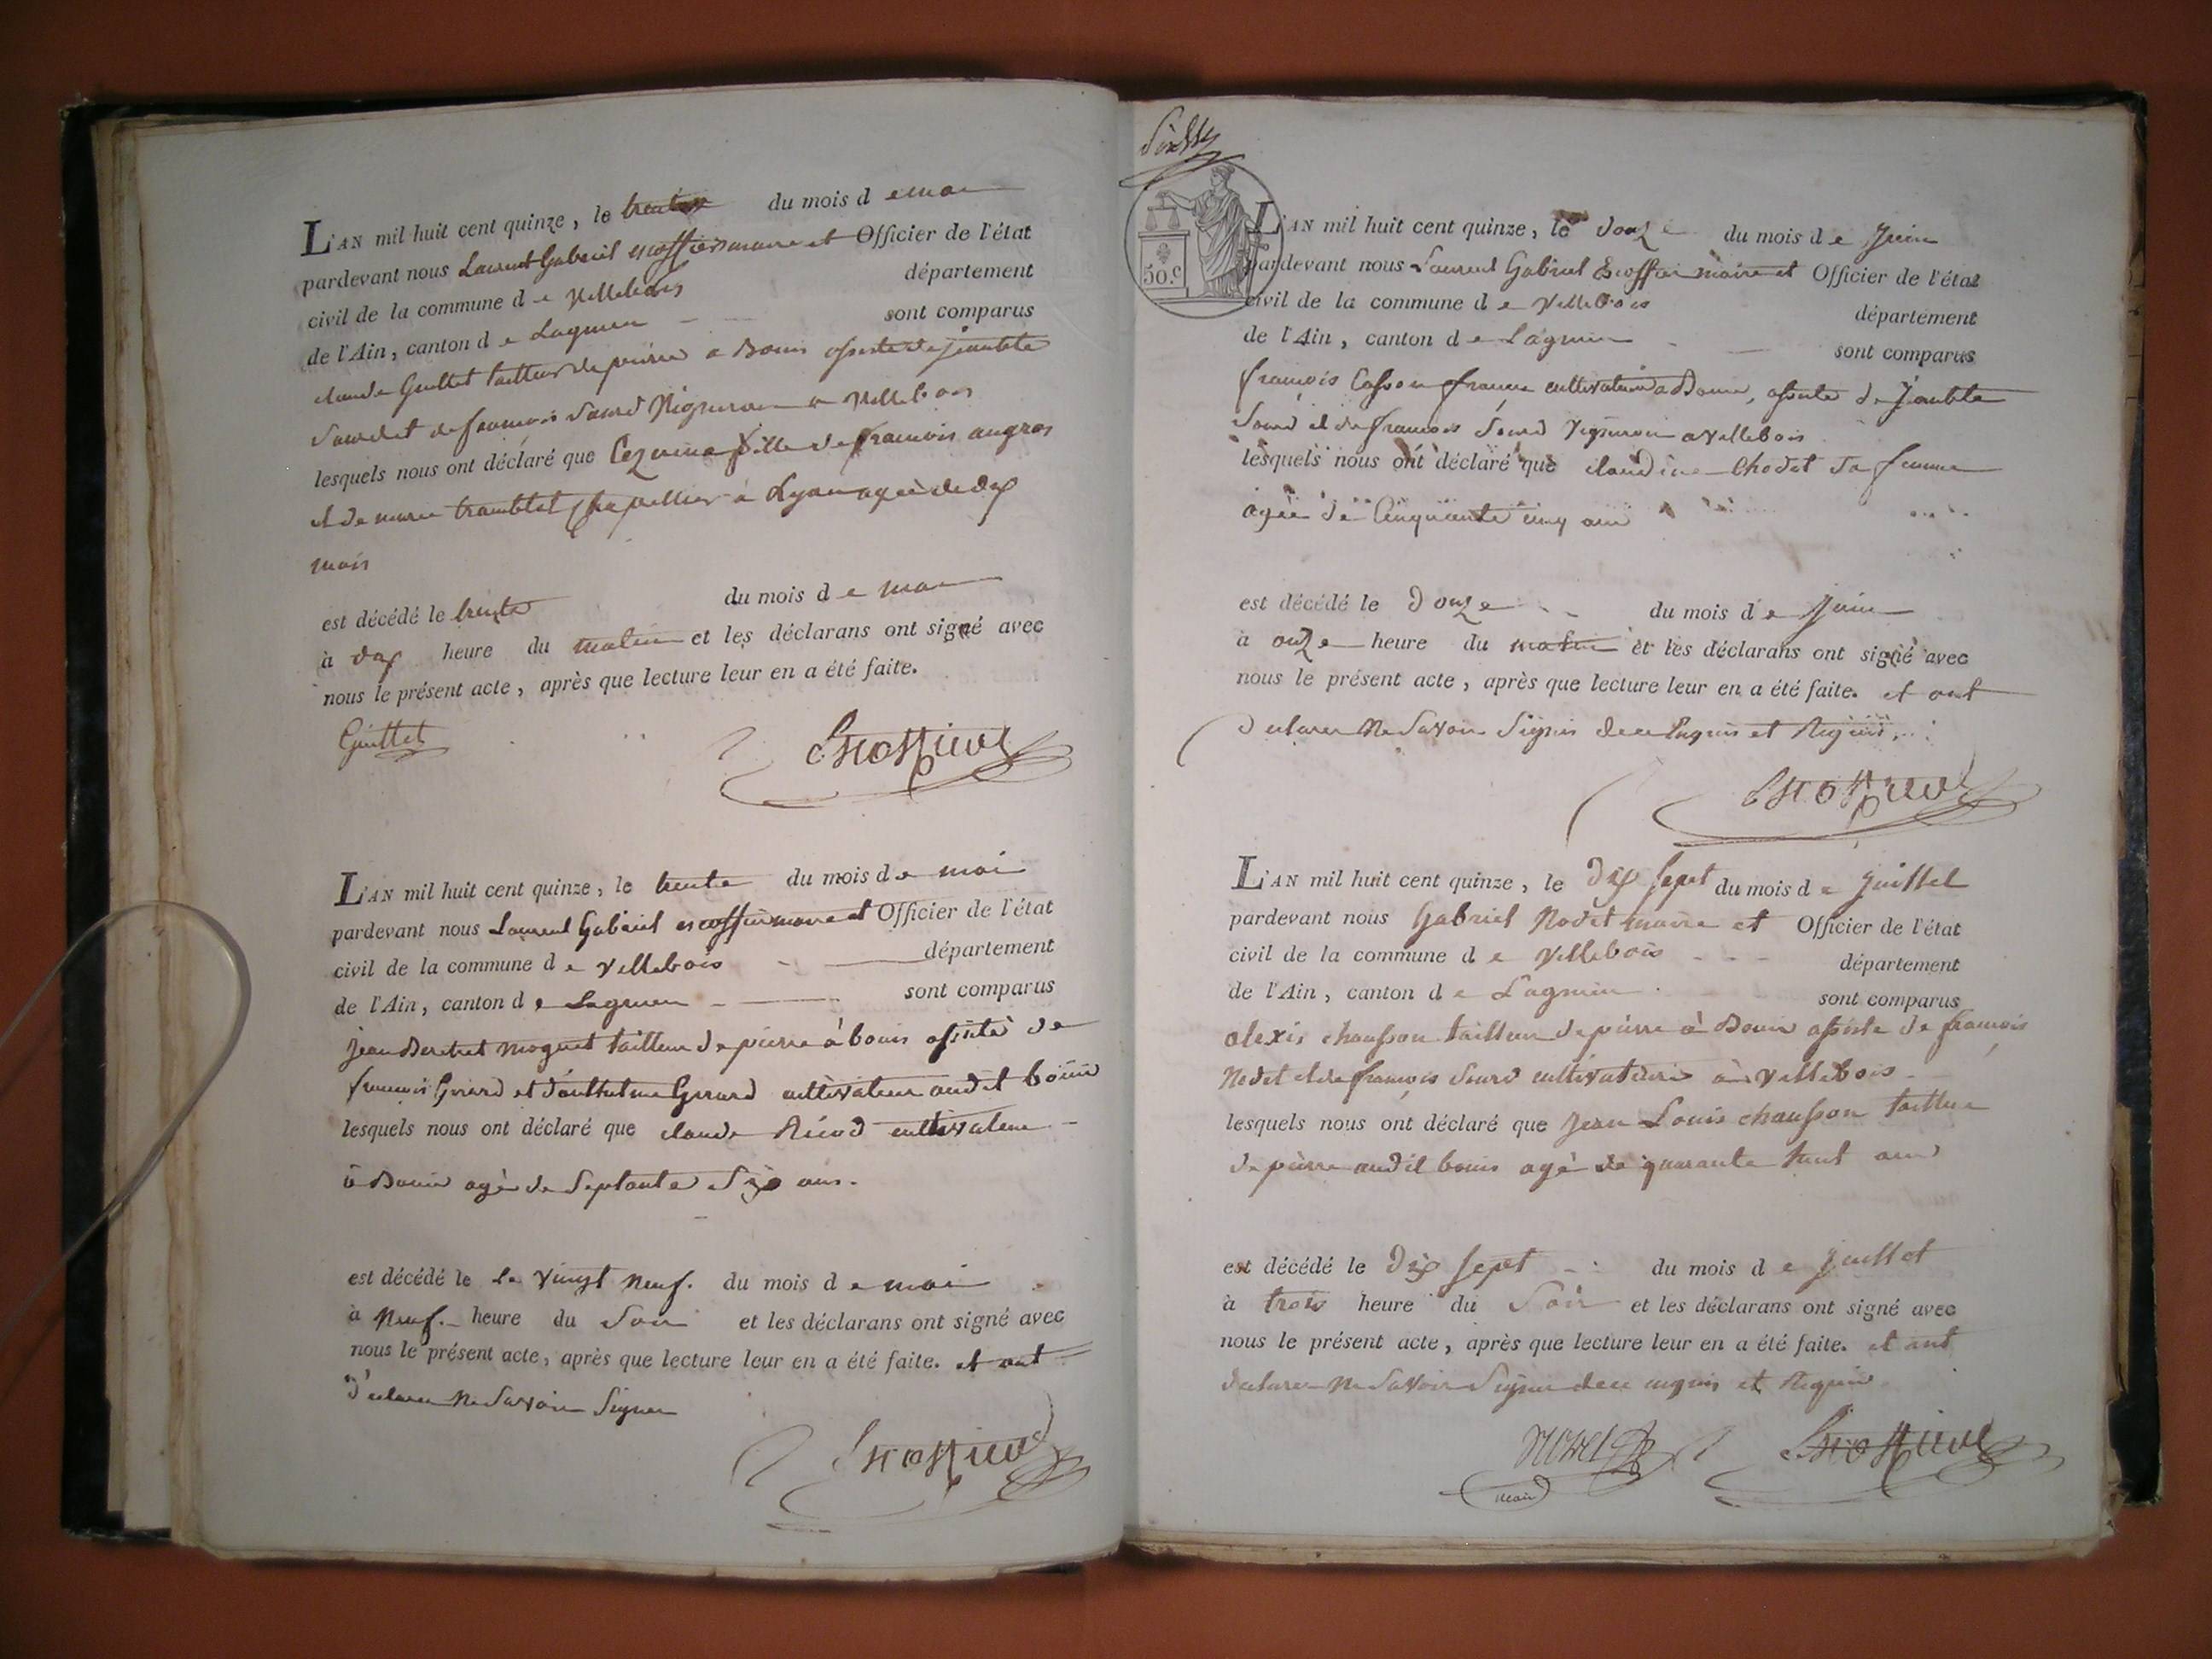 L'AN mil huit cent quinze, le trente du mois d e mai
pardevant nous Laurent Gabriel escoffier maire et Officier de l'état
civil de la commune d e Villebois département
de l'Ain, canton d e Lagnieu sont comparus
claude Guillet tailleur de pierre a Bouis assisté de
de francois Sourd Vigneron a Villebois
lesquels nous ont déclaré que fille de francois
et de marie tramblet Chapellier à Lyon agée de dix
mois
est décédé le trente du mois d e mai
à dix heure du matin et les déclarans ont signé avec
nous le présent acte, après que lecture leur en a été faite.
Guillet Escoffier
L'AN mil huit cent quinze, le trente du mois d e mai
pardevant nous Laurent Gabriel escoffier maire et Officier de l'état
civil de la commune d e Villebois département
de l'Ain, canton d e Lagnieu sont comparus
jean moguet tailleur de pierre à bouis assisté de
francois Girard et Girard cultivateur audit bouis
lesquels nous ont déclaré que claude Ricod cultivateur
à Bouis agé de Septante Six ans.
est décédé le le vingt neuf. du mois d e mai
à neuf. heure du Soir et les déclarans ont signé avec
nous le présent acte, après que lecture leur en a été faite. et ont
déclarer ne Savoir Signer
Escoffier
L'AN mil huit cent quinze, le douze du mois d e Juin
pardevant nous Laurent Gabriel Escoffier maire et Officier de l'état
50.c
civil de la commune d e Villebois département
de l'Ain, canton d e Lagnieu sont comparus
francois Casson cultivateur a Bouis, assisté de
Sourd et de francois Sourd Vigneron a Villebois
lesquels nous ont déclaré que claudine Chodet Sa femme
agée de Cinquante cinq ans
est décédé le douze du mois d e Juin
à onze heure du matin et les déclarans ont signé avec
nous le présent acte, après que lecture leur en a été faite. et ont
declarer ne Savoir Signer de ce enquis et Requis
Escoffier
L'AN mil huit cent quinze, le Dix Sept du mois d e Juillet
pardevant nous Gabriel Nodet maire et Officier de l'état
civil de la commune d e Villebois département
de l'Ain, canton d e Lagnieu sont comparus
alexis chausson tailleur de pierre à Bouis assisté de francois
Nodet et de francois Sourd cultivateurs à Villebois
lesquels nous ont déclaré que Jean Louis chausson tailleur
de pierre audit bouis agé de quarante huit ans
est décédé le Dix Sept du mois d e Juillet
à trois heure du Soir et les déclarans ont signé avec
nous le présent acte, après que lecture leur en a été faite. et ont
declarer ne Savoir Signer de ce enquis et Requis
Nodet Escoffier
maire